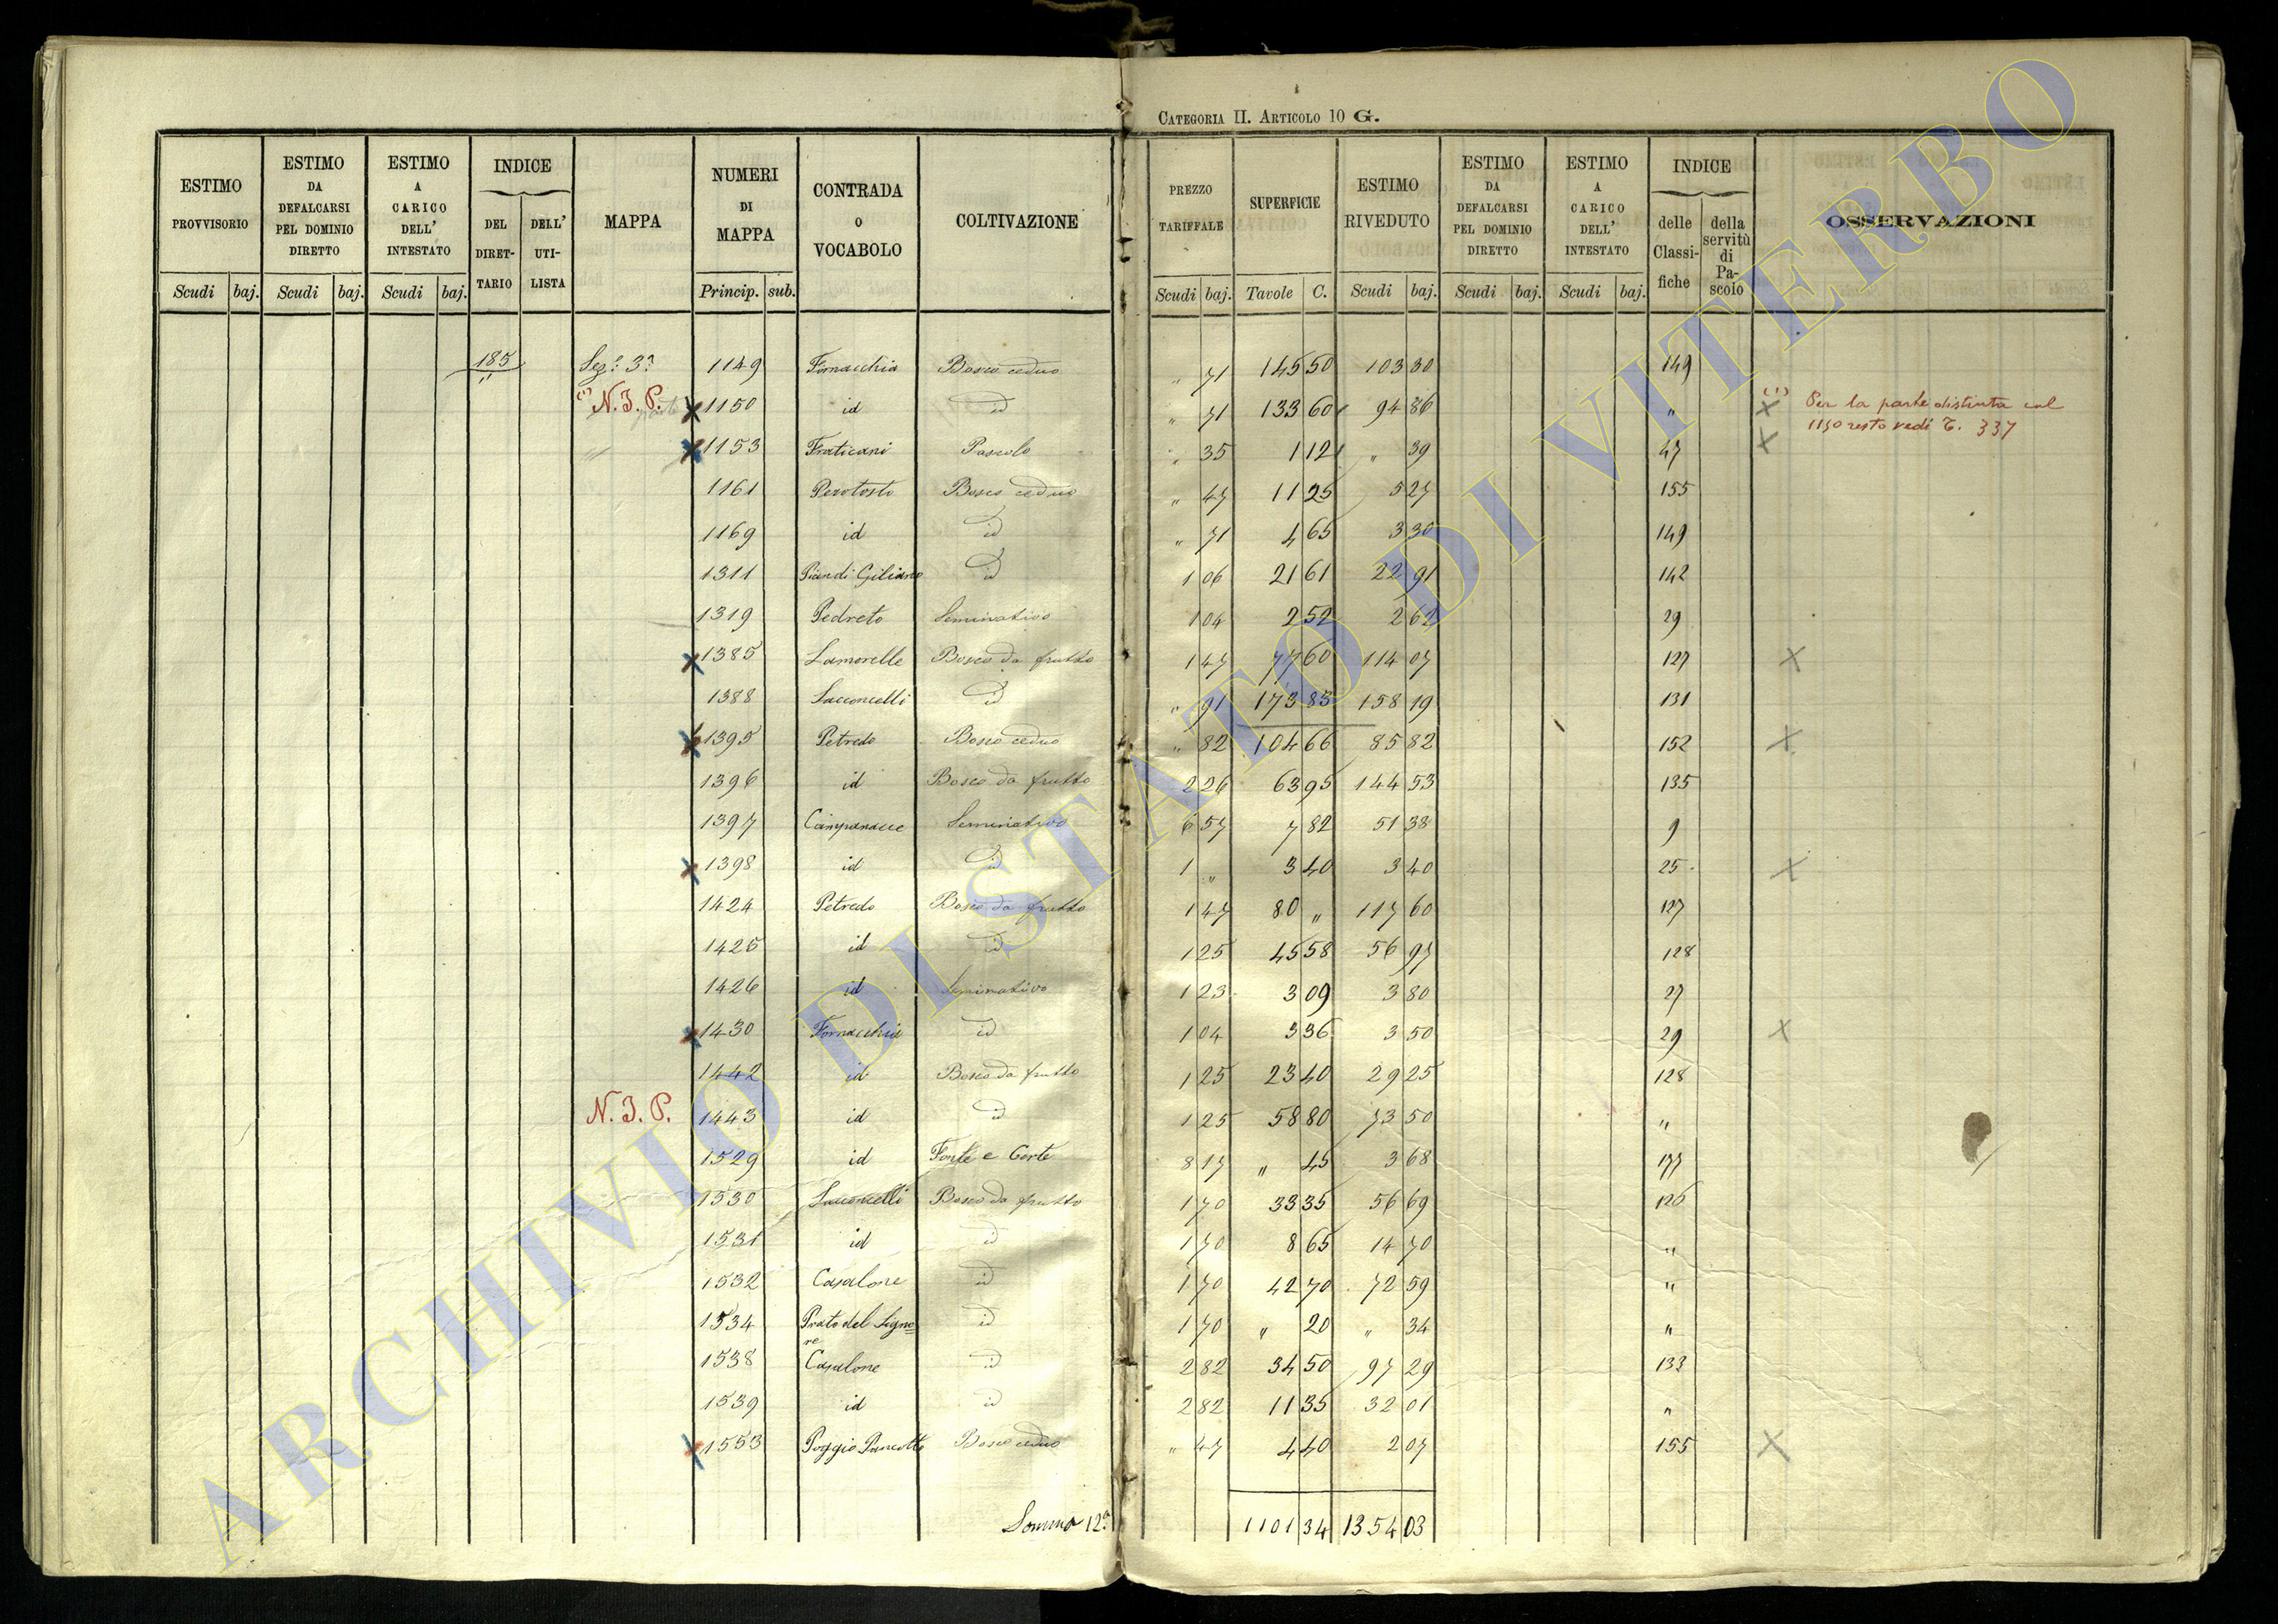 CATEGORIA II. ARTICOLO 10 G.
ESTIMO PROVVISORIO Scudi baj.
ESTIMO DA DEFALCARSI PEL DOMINIO DIRETTO Scudi baj.
ESTIMO A CARICO DELL' INTESTATO Scudi baj.
INDICE DEL DIRETTARIO DELL' UTILISTA
MAPPA
NUMERI DI MAPPA Princip. sub.
CONTRADA O VOCABOLO
COLTIVAZIONE
PREZZO TARIFFALE Scudi baj.
SUPERFICIE Tavole C.
ESTIMO RIVEDUTO Scudi baj.
ESTIMO DA DEFALCARSI PEL DOMINIO DIRETTO Scudi baj.
ESTIMO A CARICO DELL' INTESTATO Scudi baj.
INDICE delle Classifiche della servitù di Pascolo
OSSERVAZIONI
185 Sez: 3ª 1149 Fornacchia Bosco ceduo " 71 145 50 103 30 149
(1) N. I. P. parte 1150 id id " 71 133 60 94 86 " (1) Per la parte distinta col
1150 resto vedi T. 337
1153 Fraticani Pascolo " 35 1 12 " 39 47
1161 Perotosto Bosco ceduo " 47 11 25 5 27 155
1169 id id " 71 4 65 3 30 149
1311 Pian di Giliano id 1 06 21 61 22 91 142
1319 Pedreto Seminativo 1 04 2 52 2 62 29
1385 Lamorelle Bosco da frutto 1 47 77 60 114 07 127
1388 Sacconcelli id " 91 173 83 158 19 131
1395 Petredo Bosco ceduo " 82 104 66 85 82 152
1396 id Bosco da frutto 2 26 63 95 144 53 135
1397 Campanacce Seminativo 6 57 7 82 51 38 9
1398 id id 1 " 3 40 3 40 25
1424 Petredo Bosco da frutto 1 47 80 " 117 60 127
1425 id id 1 25 45 58 56 97 128
1426 id Seminativo 1 23 3 09 3 80 27
1430 Fornacchia id 1 04 3 36 3 50 29
1442 id Bosco da frutto 1 25 23 40 29 25 128
N. I. P. 1443 id id 1 25 58 80 73 50 "
1529 id Fonte e Corte 8 17 " 45 3 68 177
1530 Sacconcelli Bosco da frutto 1 70 33 35 56 69 126
1531 id id 1 70 8 65 14 70 "
1532 Casalone id 1 70 42 70 72 59 "
1534 Prato del Signore id 1 70 " 20 " 34 "
1538 Casalone id 2 82 34 50 97 29 133
1539 id id 2 82 11 35 32 01 "
1553 Poggio Pancotto Bosco ceduo " 47 4 40 2 07 155
Somma 12ª 1101 34 1354 03
ARCHIVIO DI STATO DI VITERBO